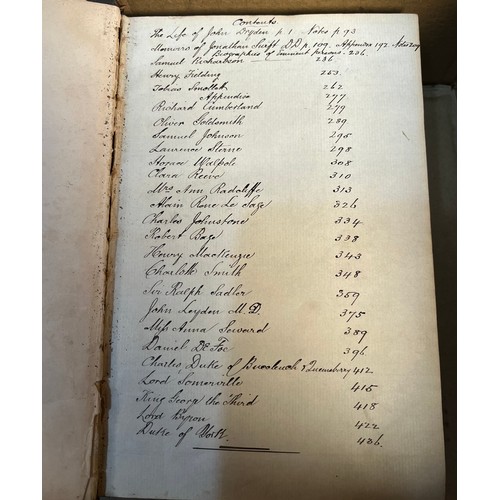 Contents.
The Life of John Dryden p 1. Notes p 93.
Memoirs of Jonathan Swift DD p. 109. Appendix 192. Notes 209
Biographies of Eminent persons. 236.
Samuel Richardson 236
Henry Fielding 253.
Tobias Smollett 262
Appendix 277
Richard Cumberland 279
Oliver Goldsmith 289
Samuel Johnson 295
Laurence Sterne 298
Horace Walpole 308
Clara Reeve 310
Mrs Ann Radcliffe 313
Alain Rene Le Sage 326
Charles Johnstone 334
Robert Bage 338
Henry Mackenzie 343
Charlotte Smith 348
Sir Ralph Sadler 359
John Leyden M.D. 375
Miss Anna Seward 389
Daniel De Foe 396
Charles, Duke of Buccleuch & Queensberry 412
Lord Somerville 415
King George the Third 418
Lord Byron 422
Duke of York. 436.